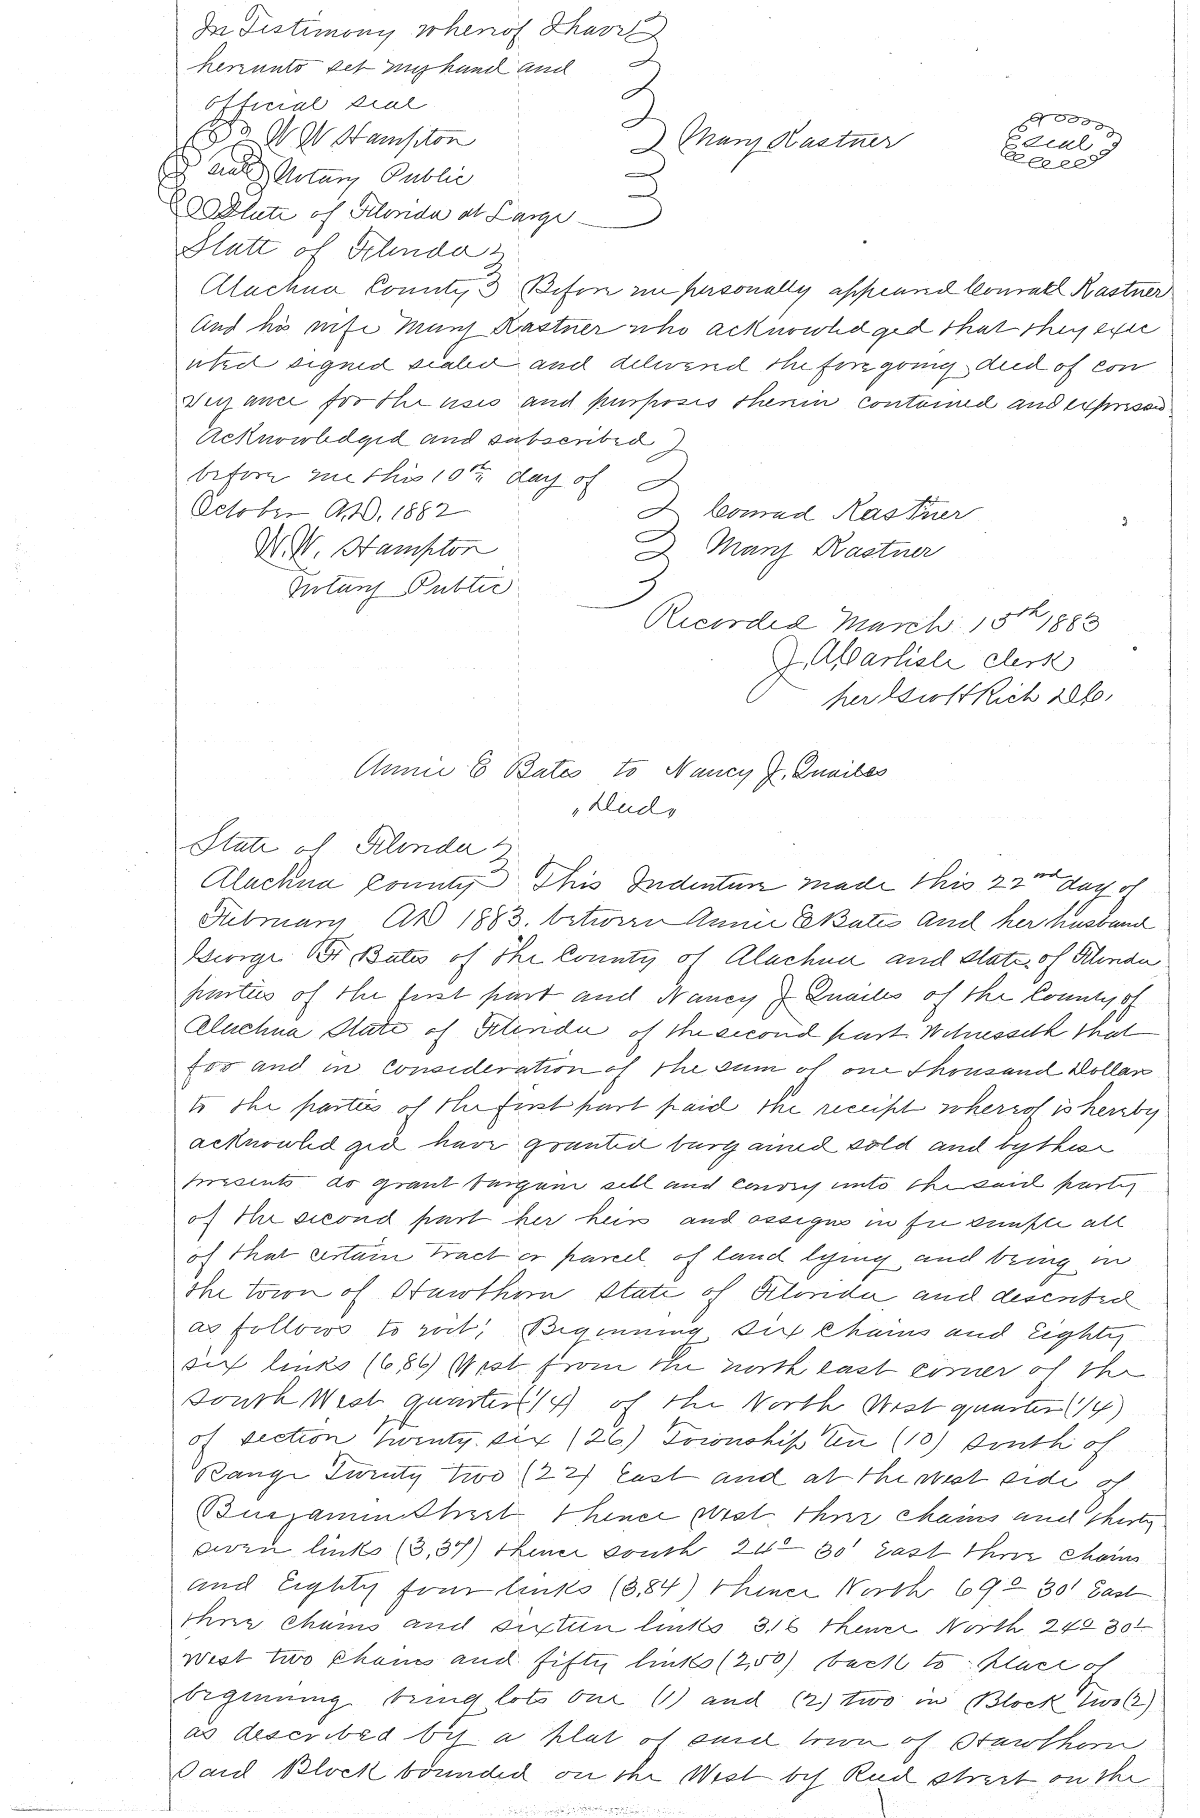 In Testimony whereof I have
hereunto set my hand and
official seal
W W Hampton
Mary Kastner
seal
seal Notary Public
State of Florida at Large
State of Florida
Alachua County Before me personally appeared Conrad Kastner
and his wife Mary Kastner who acknowledged that they exec
uted signed sealed and delivered the foregoing deed of con
vey ance for the uses and purposes therein contained and expressed
Acknowledged and subscribed
before me this 10th day of
October A.D. 1882
Conrad Kastner
W.W. Hampton
Mary Kastner
Notary Public
Recorded March 15th 1883
J. A. Carlisle clerk
per Rich D.C.
Annie E Bates to Nancy J. Quailes
"Deed"
State of Florida
Alachua County This Indenture made this 22nd day of
February AD 1883. between Annie E Bates and her husband
George Bates of the County of Alachua and State of Florida
parties of the first part and Nancy J Quailes of the County of
Alachua State of Florida of the second part Witnesseth that
for and in consideration of the sum of one thousand Dollars
to the parties of the first part paid the receipt whereof is hereby
acknowledged have granted bargained sold and by these
presents do grant bargain sell and convey unto the said party
of the second part her heirs and assigns in fee simple all
of that certain tract or parcel of land lying and being in
the town of Hawthorn State of Florida and described
as follows to wit; Beginning six chains and Eighty
six links (6,86) West from the north east corner of the
South West quarter (1/4) of the North West quarter (1/4)
of section Twenty six (26) Township Ten (10) South of
Range Twenty two (22) East and at the west side of
Benjamin Street thence West three chains and thirty
seven links (3,37) thence south 24° 30' East three chains
and Eighty four links (3,84) thence North 69° 30' East
three chains and sixteen links 3,16 thence North 24° 30'
West two chains and fifty links (2,50) back to place of
beginning being lots one (1) and (2) two in Block Two (2)
as described by a plat of said town of Hawthorn
Said Block bounded on the West by Reid street on the